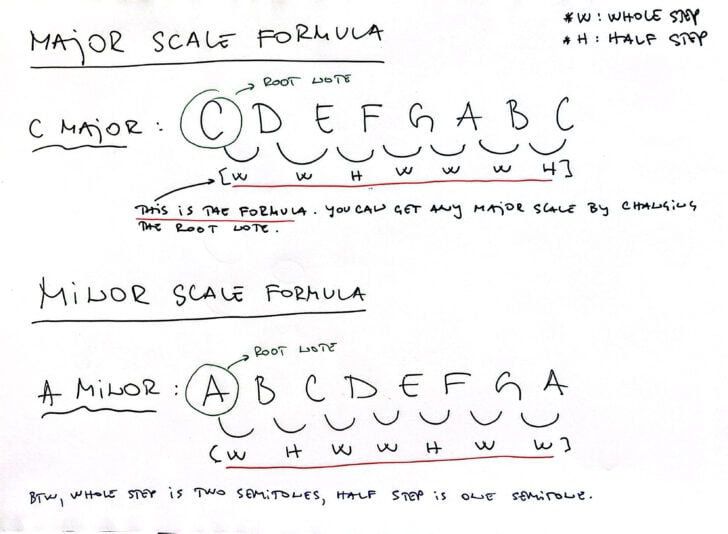 MAJOR SCALE FORMULA
*W : WHOLE STEP
*H : HALF STEP
ROOT NOTE
C MAJOR : C D E F G A B C
[W W H W W W H]
THIS IS THE FORMULA. YOU CAN GET ANY MAJOR SCALE BY CHANGING
THE ROOT NOTE.
MINOR SCALE FORMULA
ROOT NOTE
A MINOR : A B C D E F G A
[W H W W H W W]
BTW, WHOLE STEP IS TWO SEMITONES, HALF STEP IS ONE SEMITONE.